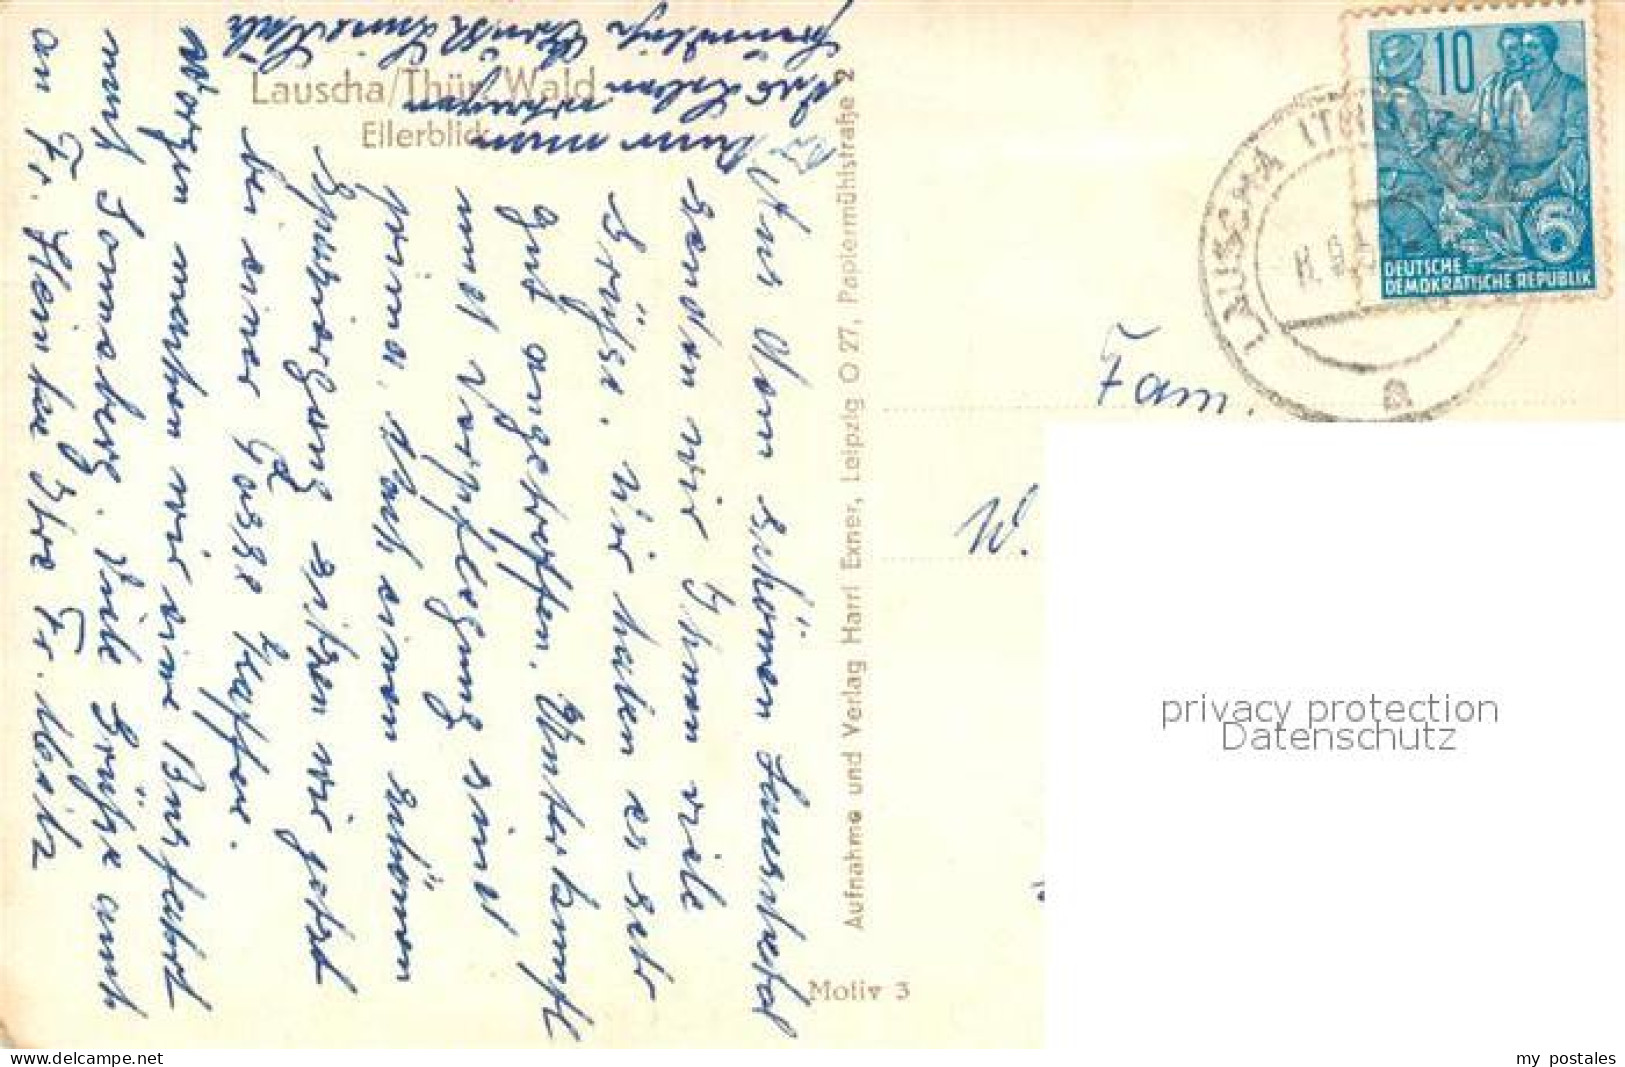 Lauscha/Thür. Wald
Ellerblick
Aus dem schönen
senden wir Ihnen viele
Grüße. Wir haben es sehr
gut angetroffen. Unterkunft
und Verpflegung sind
prima. Nach einem schönen
Spaziergang sitzen wir jetzt
bei einer Tasse Kaffee.
Morgen machen wir eine Busfahrt
nach Sonneberg. Viele Grüße auch
an Fr. Ihre Fr.
Aufnahme und Verlag Harri Exner, Leipzig O 27, Papiermühlstraße 2
Motiv 3
10
5
DEUTSCHE
DEMOKRATISCHE REPUBLIK
LAUSCHA
a
Fam.
W.
privacy protection
Datenschutz
www.delcampe.net
my postales